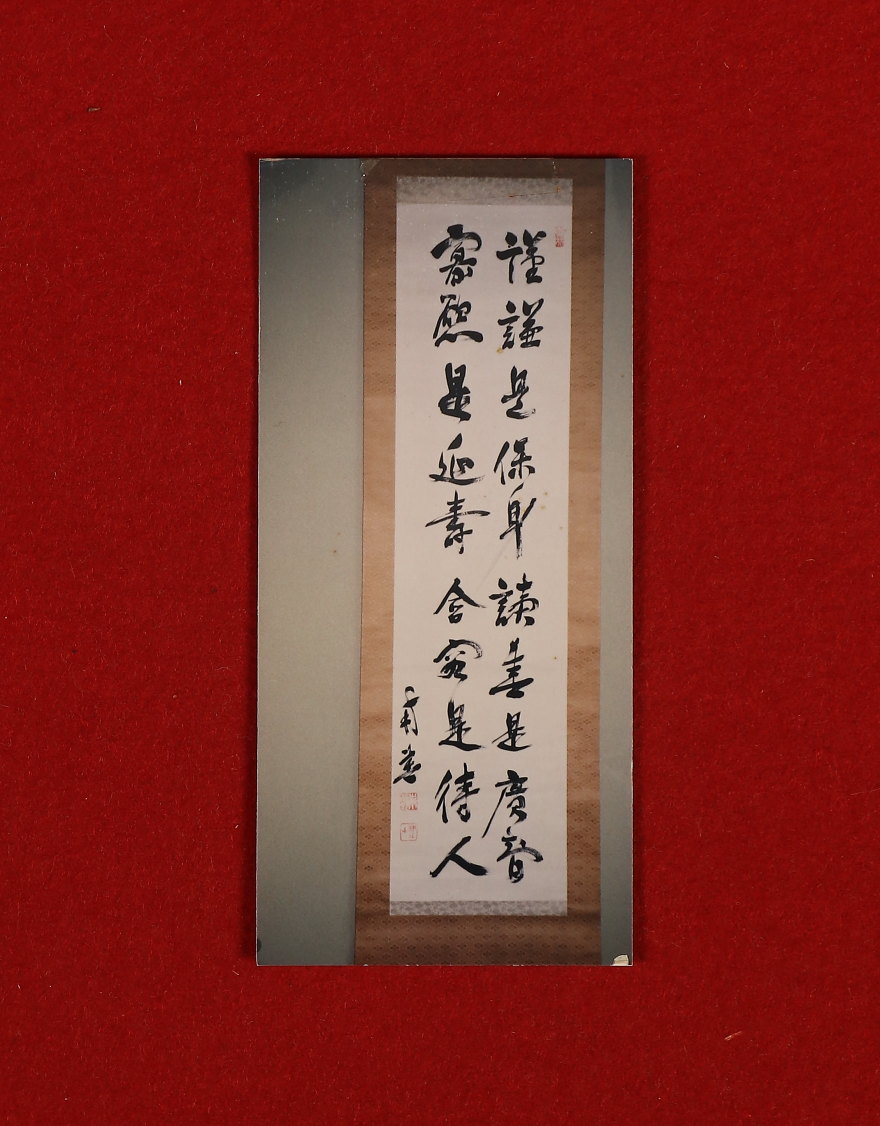 謹謙是保身讀書是廣智
寡慾是延壽含容是待人